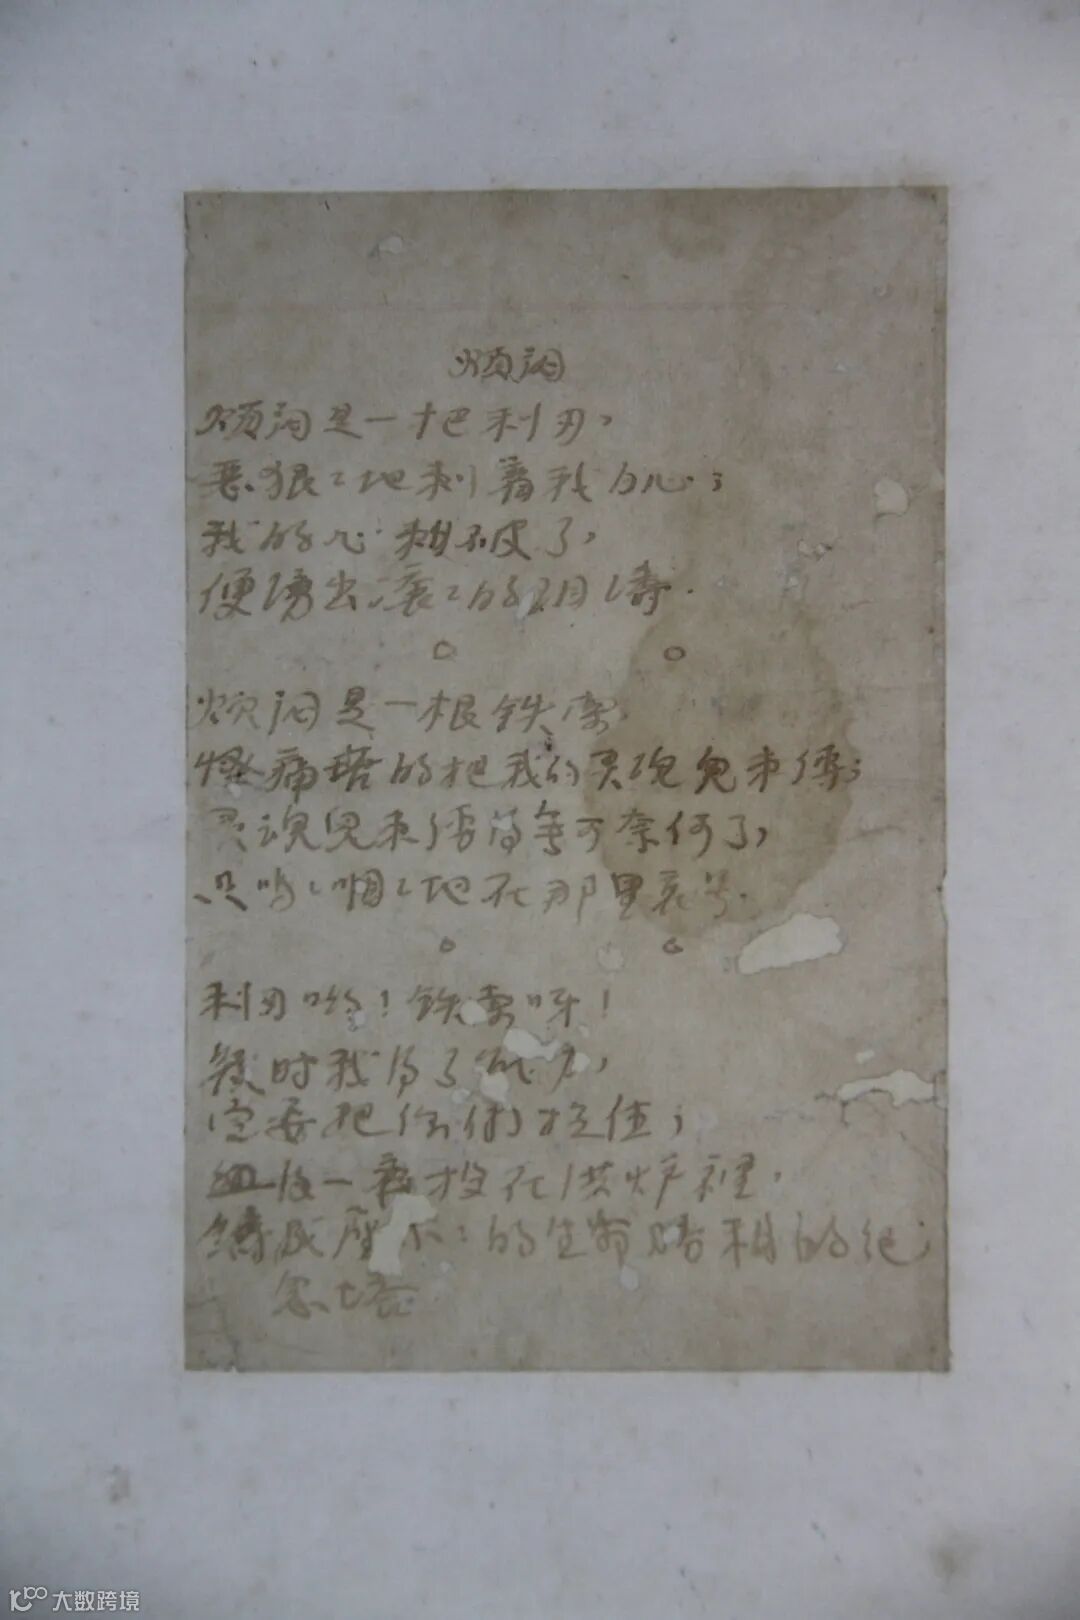 烦闷
烦闷是一把利刃，
恶狠々地刺着我的心；
我的心刺破了，
便涌出滚々的泪涛.
○ ○
烦闷是一根铁索，
怪痛苦的把我的灵魂儿束缚；
灵魂儿束缚得无可奈何了，
只呜々咽々地在那里哀号.
○ ○
利刃哟！铁索呀！
几时我得了能力，
定要把你们捉住；
一齐投在洪炉裡，
铸成座 的生命 的纪
念塔
大数跨境